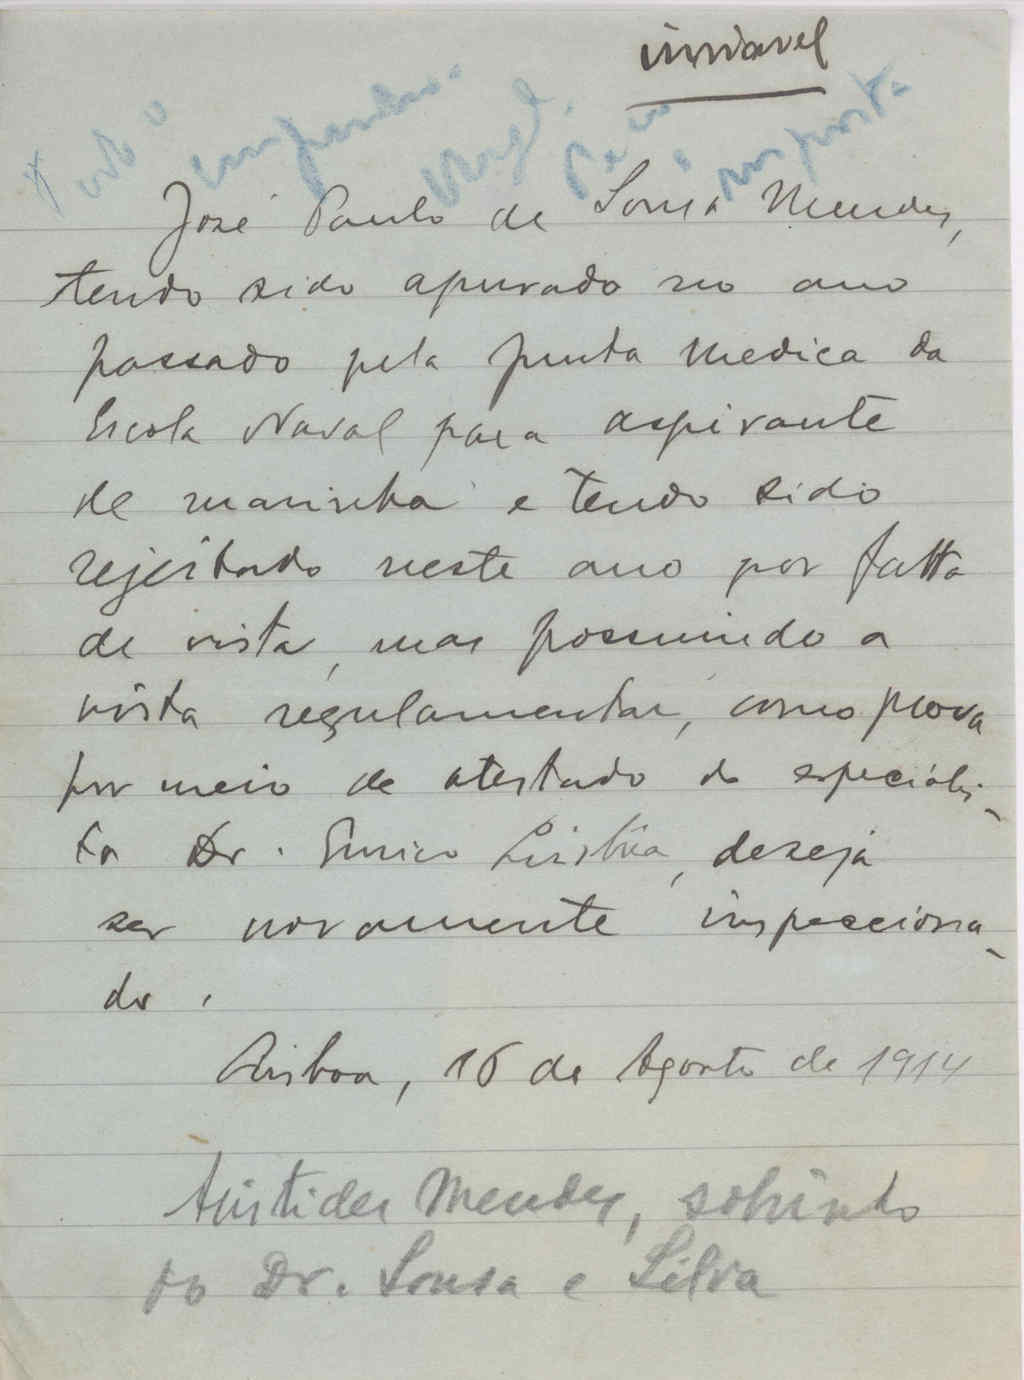 José Paulo de Sousa Mendes,
tendo sido apurado no ano
passado pela junta medica da
Escola Naval para aspirante
de marinha e tendo sido
rejeitado neste ano por falta
de vista, mas possuindo a
vista regulamentar, como prova
por meio de atestado do especialis-
ta Dr. Enrico Lisbôa, deseja
ser novamente inspecciona-
do.
Lisboa, 16 de Agosto de 1914
Aristides Mendes, sobrinho
do Dr. Sousa e Silva